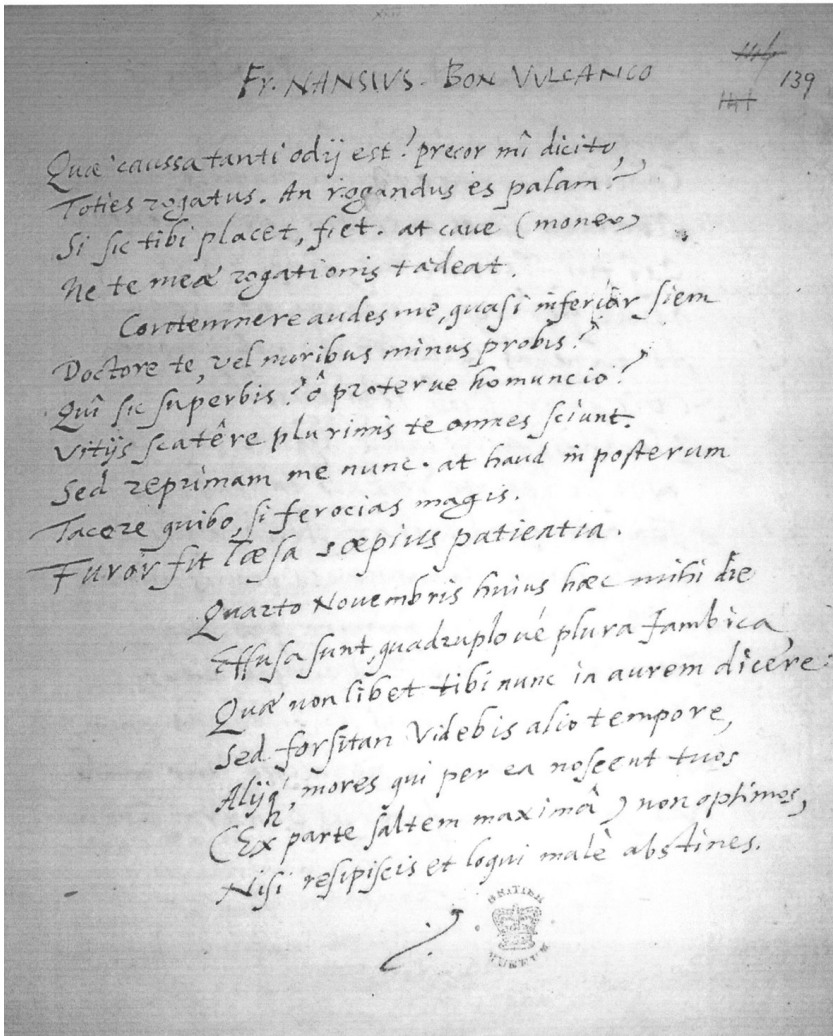 Fr. NANSIVS. BON VVLCANIO
139
Quæ caussa tanti odij est? precor mî dicito,
Toties rogatus. An rogandus es palam?
Si sic tibi placet, fiet. at caue (moneo)
Ne te meæ rogationis tædeat.
Contemnere audes me, quasi inferior siem
Doctore te, vel moribus minus probis?
Quî sic superbis? ô proterue homuncio?
Vitijs scatêre plurimis te omnes sciunt.
Sed reprimam me nunc. at haud in posterum
Tacere quibo, si ferocias magis.
Furor fit læsa sæpius patientia.
Quarto Novembris huius hæc mihi die
Effusa sunt, quadruplo vé plura Iambica,
Quæ non libet tibi nunc in aurem dicere:
Sed forsitan videbis alio tempore,
Alijq', mores qui per ea noscent tuos
(Ex parte saltem maximâ) non optimos,
Nisi resipiscis et loqui malè abstines.
BRITISH
MUSEUM